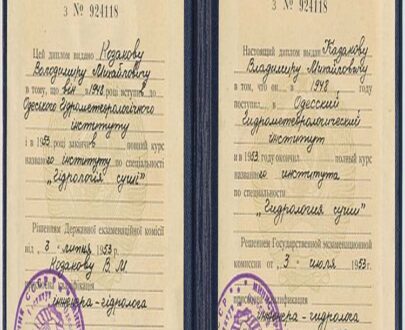 З № 924118
Цей диплом видано Козакову
Володимиру Михайловичу
в тому, що він в 1948 році вступив до
Одеського Гідрометеорологічного
інституту
і в 1953 році закінчив повний курс
названого інституту по спеціальності
„Гідрологія суші"
Рішенням Державної екзаменаційної комісії
від „3" липня 1953 р.
Козакову В. М.
кваліфікація
інженера-гідролога
З № 924118
Настоящий диплом выдан Казакову
Владимиру Михайловичу
в том, что он в 1948 году
поступил в Одесский
Гидрометеорологический
институт
и в 1953 году окончил полный курс
названного института
по специальности
„Гидрология суши"
Решением Государственной экзаменационной
комиссии от „3" июля 1953 г.
квалификация
инженера-гидролога